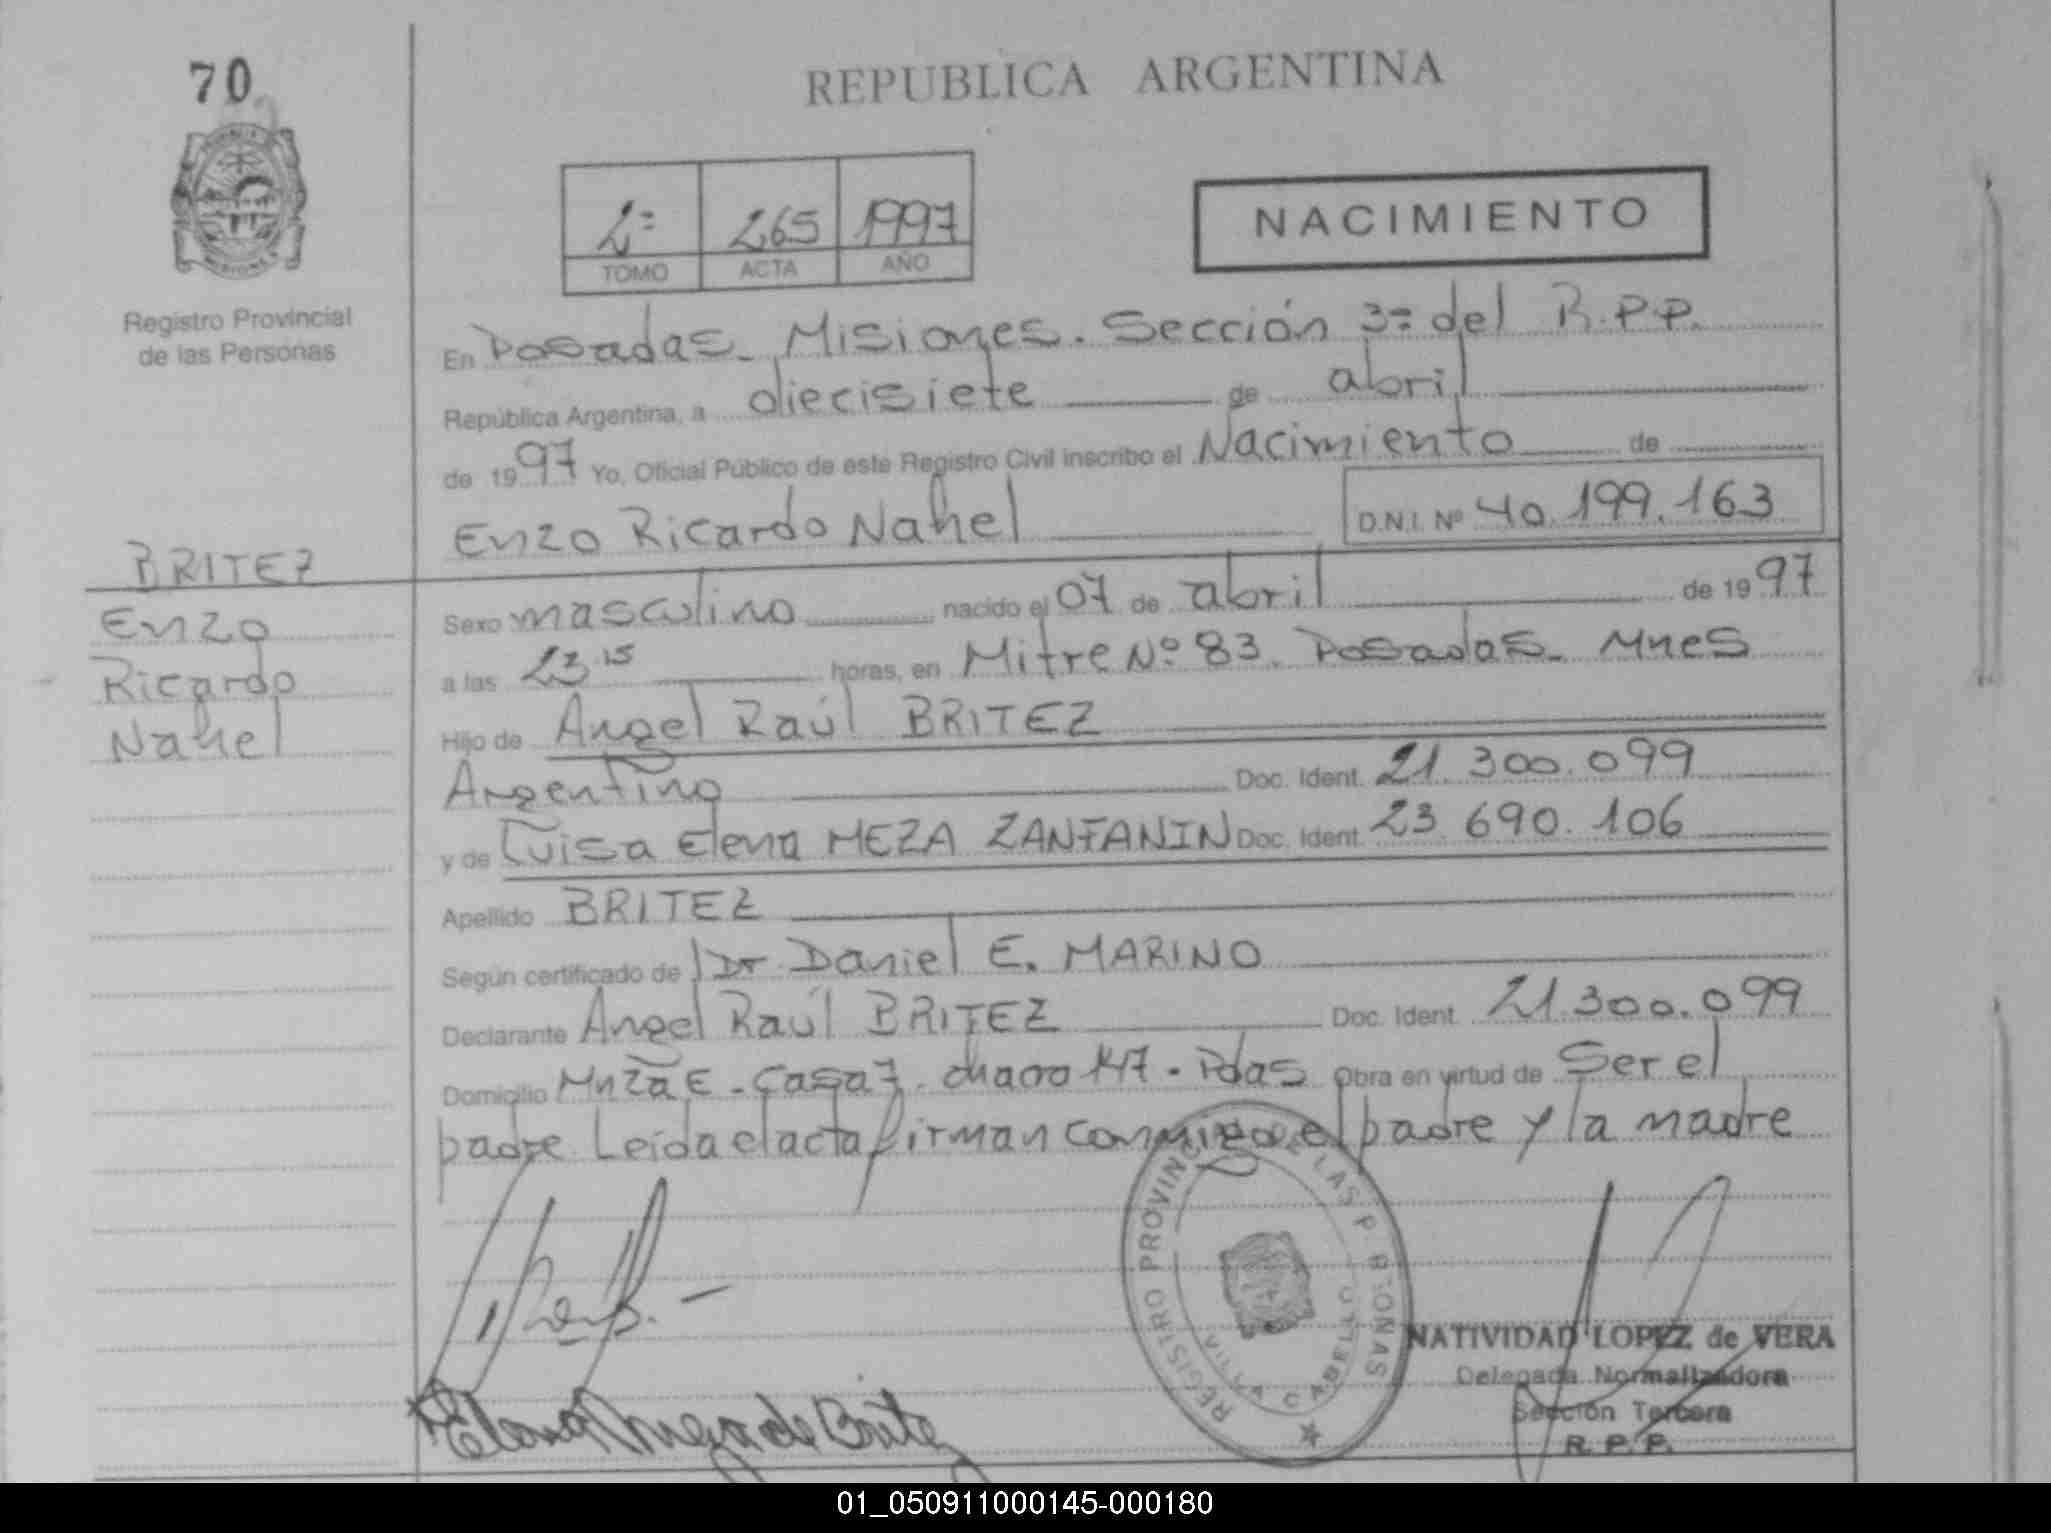 70
REPUBLICA ARGENTINA
2º 265 1997
TOMO ACTA AÑO
NACIMIENTO
Registro Provincial
de las Personas
En Posadas - Misiones. Sección 3º del R.P.P.
República Argentina, a diecisiete de abril
de 1997 Yo, Oficial Público de este Registro Civil inscribo el Nacimiento de
Enzo Ricardo Nahel D.N.I. Nº 40.199.163
BRITEZ
Enzo
Ricardo
Nahel
Sexo masculino nacido el 07 de abril de 1997
a las 23 15 horas, en Mitre Nº 83. Posadas - Mnes
Hijo de Angel Raúl BRITEZ
Argentino Doc. Ident. 21.300.099
y de Luisa Elena MEZA ZANFANIN Doc. Ident. 23.690.106
Apellido BRITEZ
Según certificado de Dr Daniel E. MARINO
Declarante Angel Raúl BRITEZ Doc. Ident. 21.300.099
Domicilio Mnza E - Casa 7 - chacra 147 - Pdas Obra en virtud de Ser el
padre Leída el acta firman conmigo el padre y la madre
REGISTRO PROVINCIAL DE LAS PERSONAS
VILLA CABELLO
NATIVIDAD LOPEZ de VERA
Delegada Normalizadora
Sección Tercera
R. P. P.
Elena Meza de Britez
01_050911000145-000180